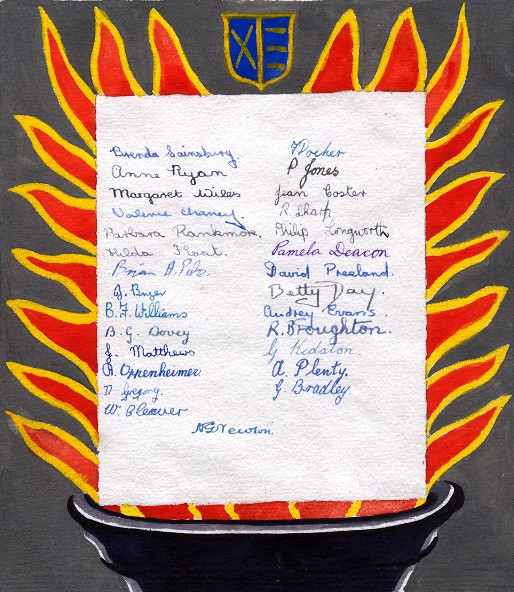 Brenda Sainsbury.
Anne Ryan
Margaret Wiles
Valerie Chaney.
Barbara
Hilda Float.
Brian A.
J. Buyer
B. J. Williams
B. G. Dovey
J. Matthews
R. Oppenheimer.
D Gregory.
W. Cleaver
P Jones
Jean Coster
R Sharp
Philip Longworth
Pamela Deacon
David Presland.
Betty Day.
Audrey Evans.
R. Broughton.
G Kedston
A. Plenty.
G. Bradley
Newton.